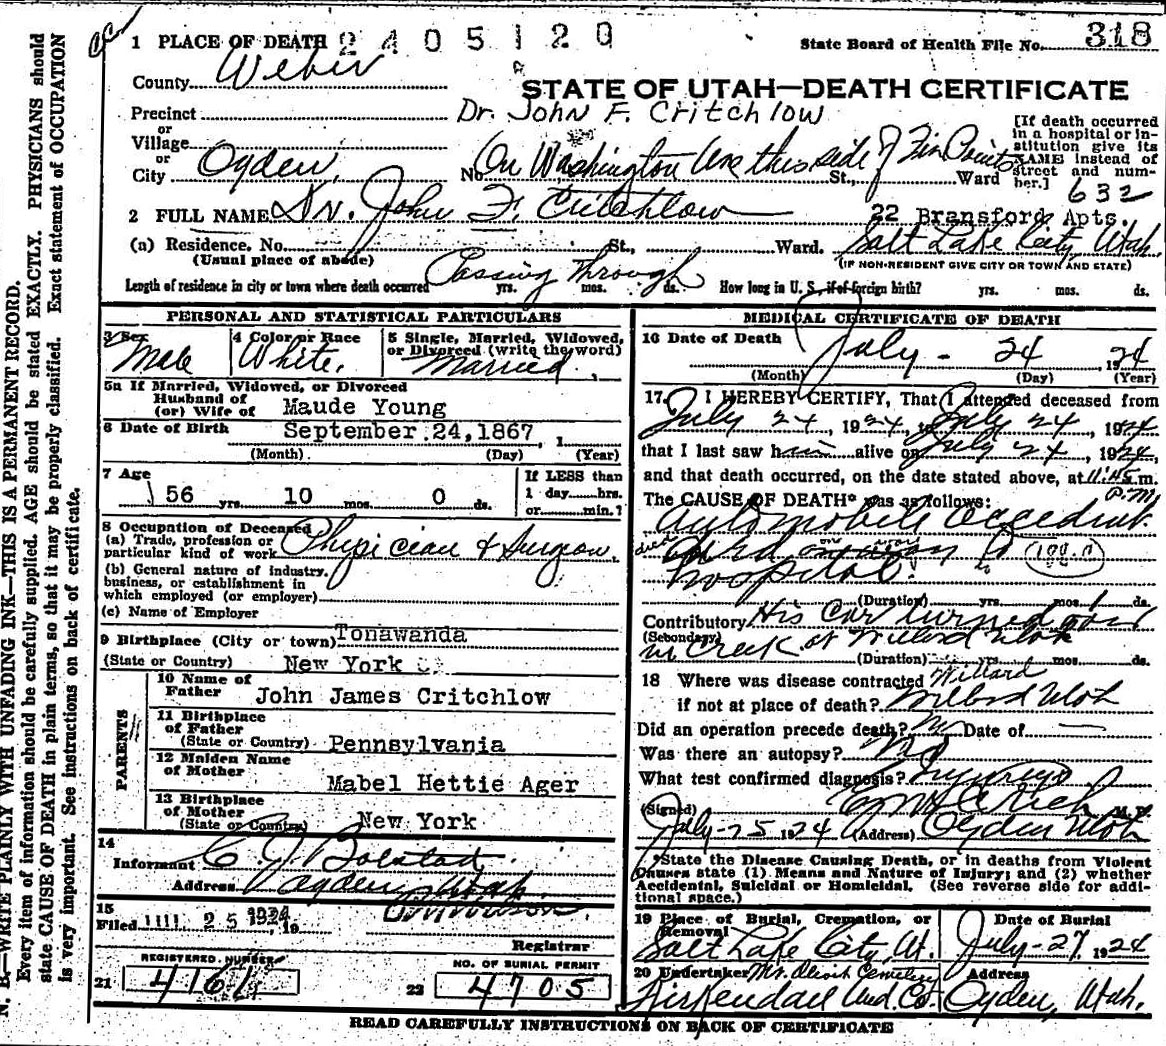 1 PLACE OF DEATH 2405120 State Board of Health File No. 318
County Weber
STATE OF UTAH—DEATH CERTIFICATE
Precinct
Dr. John F. Critchlow
or
Village
or
City Ogden, No On Washington Ave this side of Five Points St., Ward
[If death occurred
in a hospital or in-
stitution give its
NAME instead of
street and num-
ber.] 632
2 FULL NAME Dr. John F. Critchlow
22 Bransford Apts.
(a) Residence. No. St., Ward. Salt Lake City, Utah.
(Usual place of abode) (IF NON-RESIDENT GIVE CITY OR TOWN AND STATE)
Length of residence in city or town where death occurred Passing Through yrs. mos. ds. How long in U. S., if of foreign birth? yrs. mos. ds.
PERSONAL AND STATISTICAL PARTICULARS
3 Sex Male
4 Color or Race White.
5 Single, Married, Widowed,
or Divorced (write the word)
Married.
5a If Married, Widowed, or Divorced
Husband of
(or) Wife of Maude Young
6 Date of Birth September 24, 1867, 1
(Month) (Day) (Year)
7 Age
56 yrs. 10 mos. 0 ds.
If LESS than
1 day hrs.
or min.?
8 Occupation of Deceased
(a) Trade, profession or
particular kind of work Physician & Surgeon.
(b) General nature of industry,
business, or establishment in
which employed (or employer)
(c) Name of Employer
9 Birthplace (City or town) Tonawanda
(State or Country) New York
PARENTS
10 Name of
Father John James Critchlow
11 Birthplace
of Father
(State or Country) Pennsylvania
12 Maiden Name
of Mother Mabel Hettie Ager
13 Birthplace
of Mother
(State or Country) New York
14
Informant
Address Ogden, Utah
15
Filed 25 1924, 19
Registrar
REGISTERED NUMBER
21 416
NO. OF BURIAL PERMIT
22 4705
MEDICAL CERTIFICATE OF DEATH
16 Date of Death July - 24 1924
(Month) (Day) (Year)
17. I HEREBY CERTIFY, That I attended deceased from
July 24, 1924, to July 24, 1924
that I last saw him alive on July 24, 1924,
and that death occurred, on the date stated above, at 11:45 m.
P.M.
The CAUSE OF DEATH* was as follows:
Automobile Accident.
hospital.
(Duration) yrs. mos. ds.
Contributory His car turned over
(Secondary) in Creek at Willard Utah
(Duration) yrs. mos. ds.
18 Where was disease contracted Willard
if not at place of death? Willard Utah
Did an operation precede death? No Date of
Was there an autopsy? No
What test confirmed diagnosis?
(Signed) Rich M. D.
July - 25 1924 (Address) Ogden Utah
*State the Disease Causing Death, or in deaths from Violent
Causes state (1) Means and Nature of Injury; and (2) whether
Accidental, Suicidal or Homicidal. (See reverse side for addi-
tional space.)
19 Place of Burial, Cremation, or
Removal
Salt Lake City, Ut.
Date of Burial
July - 27, 1924
Mt. Olivet Cemetery
20 Undertaker
Kirkendall Und. Co.
Address
Ogden, Utah.
READ CAREFULLY INSTRUCTIONS ON BACK OF CERTIFICATE
N. B.—WRITE PLAINLY WITH UNFADING INK—THIS IS A PERMANENT RECORD.
Every item of information should be carefully supplied. AGE should be stated EXACTLY. PHYSICIANS should
state CAUSE OF DEATH in plain terms, so that it may be properly classified. Exact statement of OCCUPATION
is very important. See instructions on back of certificate.